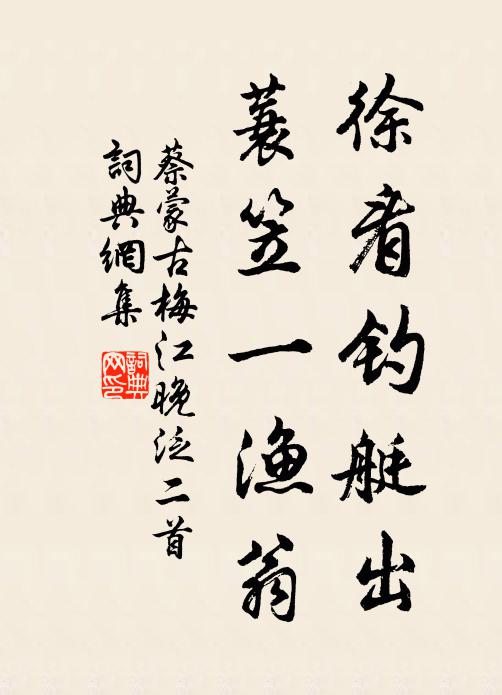 徐看钓艇出
蓑笠一渔翁
蔡蒙古梅江晚泛二首
詞典網集
詞典网印